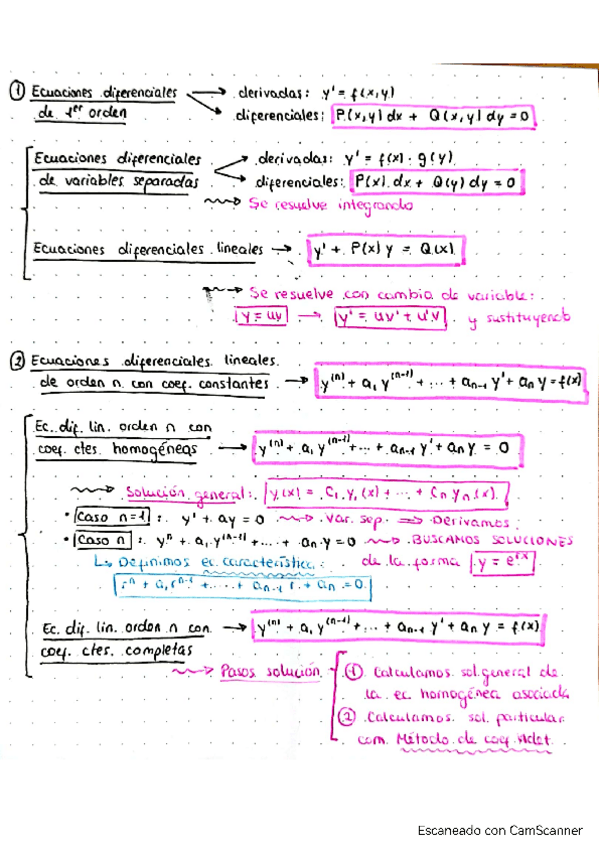 ① Ecuaciones diferenciales → derivadas: y' = f(x,y)
de 1er orden → diferenciales: P(x,y) dx + Q(x,y) dy = 0
Ecuaciones diferenciales → derivadas: y' = f(x) · g(y)
de variables separadas → diferenciales: P(x) dx + Q(y) dy = 0
Se resuelve integrando
Ecuaciones diferenciales lineales → y' + P(x) y = Q(x)
Se resuelve con cambio de variable:
y = uv → y' = uv' + u'v y sustituyendo
② Ecuaciones diferenciales lineales
de orden n con coef. constantes → y⁽ⁿ⁾ + a₁ y⁽ⁿ⁻¹⁾ + ... + aₙ₋₁ y' + aₙ y = f(x)
Ec. dif. lin. orden n con
coef. ctes. homogéneas → y⁽ⁿ⁾ + a₁ y⁽ⁿ⁻¹⁾ + ... + aₙ₋₁ y' + aₙ y = 0
Solución general: y(x) = C₁ y₁(x) + ... + Cₙ yₙ(x)
• Caso n=1: y' + ay = 0 → Var. sep. ⇒ Derivamos
• Caso n: yⁿ + a₁ y⁽ⁿ⁻¹⁾ + ... + aₙ y = 0 → BUSCAMOS SOLUCIONES
↳ Definimos ec. característica: de la forma y = eʳˣ
rⁿ + a₁ rⁿ⁻¹ + ... + aₙ₋₁ r + aₙ = 0
Ec. dif. lin. orden n con → y⁽ⁿ⁾ + a₁ y⁽ⁿ⁻¹⁾ + ... + aₙ₋₁ y' + aₙ y = f(x)
coef. ctes. completas
Pasos solución ① Calculamos sol. general de
la ec. homogénea asociada
② Calculamos sol. particular
com Método de coef.
Escaneado con CamScanner